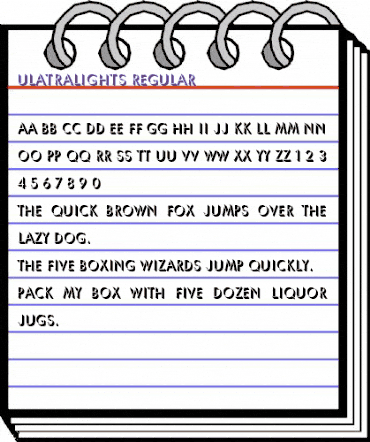 ULATRALIGHTS REGULAR
AA BB CC DD EE FF GG HH II JJ KK LL MM NN
OO PP QQ RR SS TT UU VV WW XX YY ZZ 1 2 3
4 5 6 7 8 9 0
THE QUICK BROWN FOX JUMPS OVER THE
LAZY DOG.
THE FIVE BOXING WIZARDS JUMP QUICKLY.
PACK MY BOX WITH FIVE DOZEN LIQUOR
JUGS.